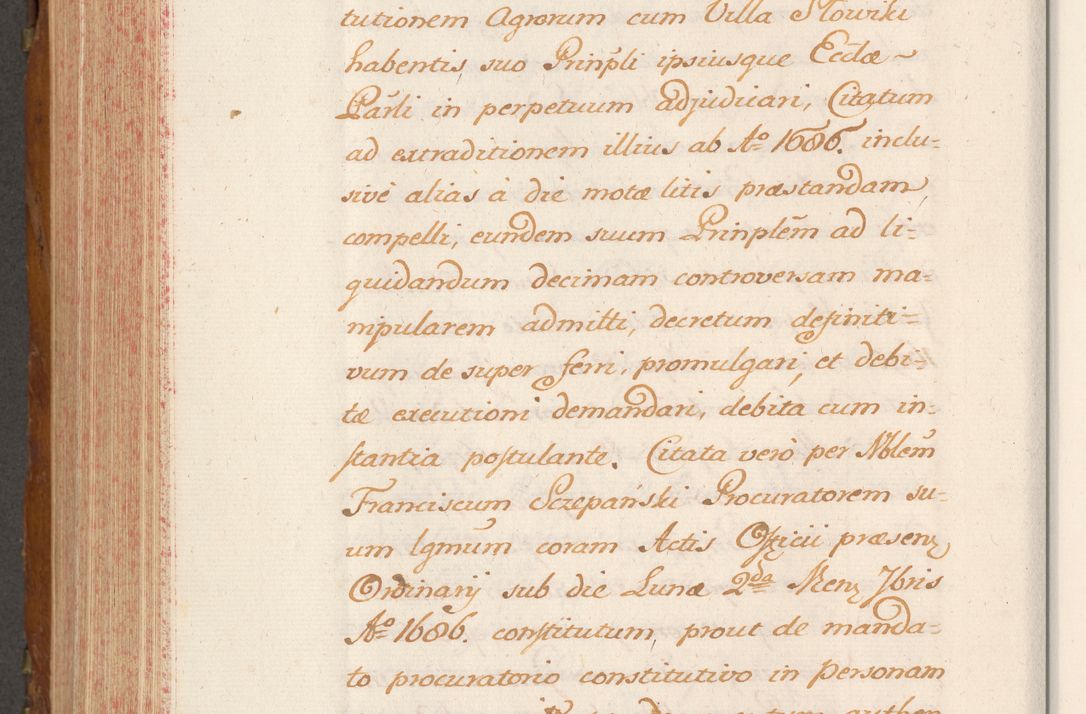 tutionem Agrorum cum Villa Słowiki
habentis, suo Prinp̃li ipsiusque Eccl̃æ ~
Par̃li in perpetuum adjudicari, Citatum
ad extraditionem illius ab Aº 1686. inclu=
sivè alias à die motæ litis præstandam
compelli, eundem suum Prinplẽm ad li=
quidandum decimam controversam ma=
nipularem admitti, decretum definiti=
vum de super ferri, promulgari, et debi=
tæ executioni demandari, debita cum in=
stantia postulante. Citata verò per Nblem̃
Franciscum Sczepański Procuratorem su=
um lgmũm coram Actis Officii præsenꝫ
Ordinarij sub die Lunæ 2da Menꝫ 7bris
Aº 1686. constitutum, prout de manda=
to procuratorio constitutivo in personam